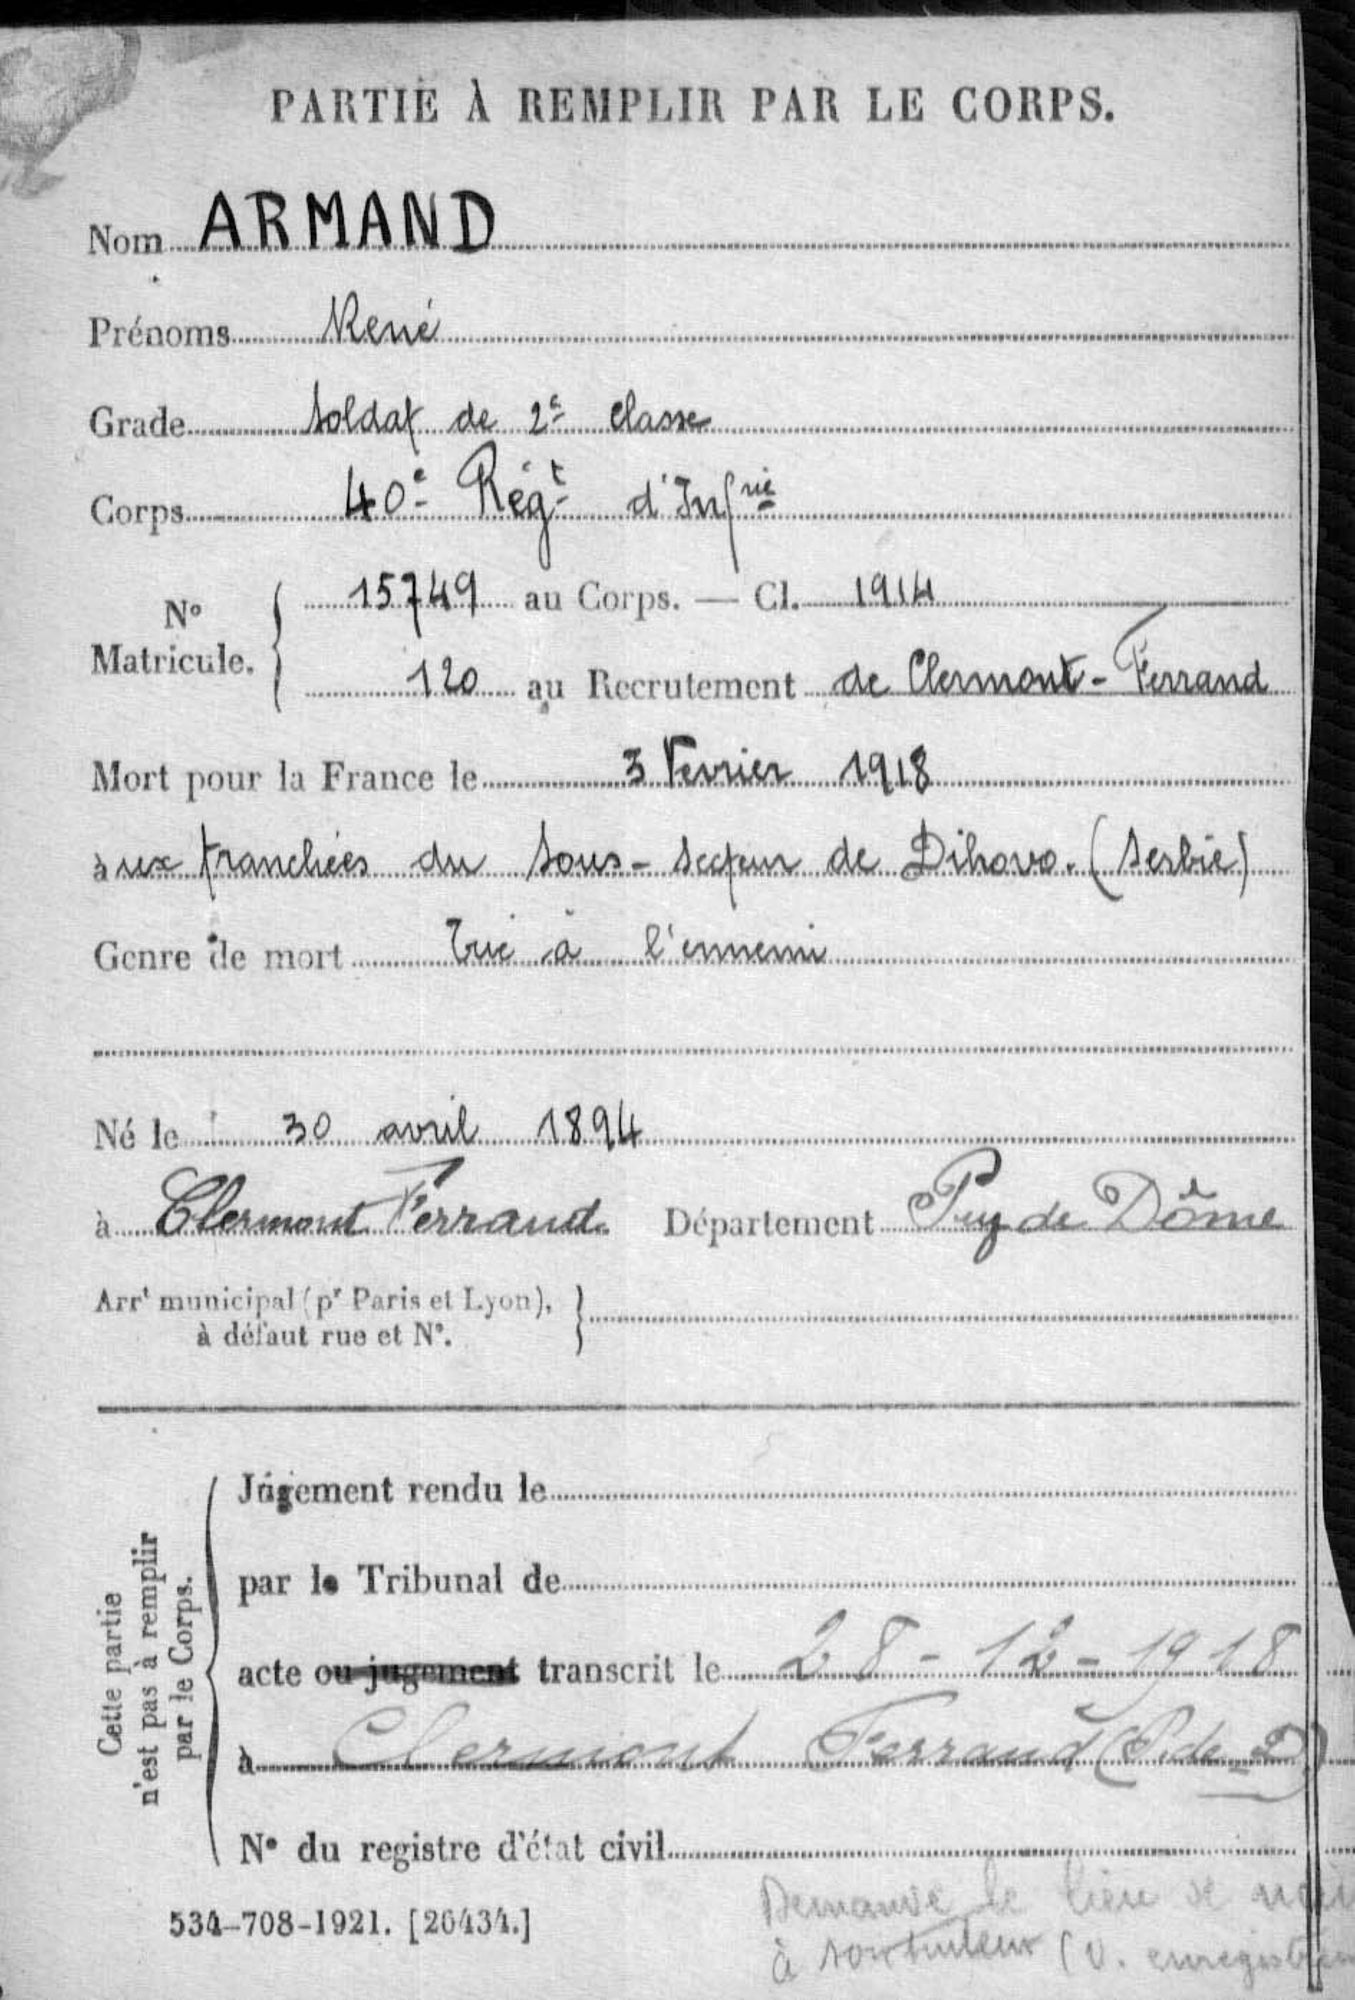 PARTIE À REMPLIR PAR LE CORPS.
Nom ARMAND
Prénoms René
Grade Soldat de 2e classe
Corps 40e Régt d'Infrie
No Matricule. { 15749 au Corps. — Cl. 1914
120 au Recrutement de Clermont-Ferrand
Mort pour la France le 3 Fevrier 1918
aux tranchées du sous-secteur de Dihovo. (Serbie)
Genre de mort Tué à l'ennemi
Né le 30 avril 1894
à Clermont Ferrand. Département Puy de Dôme
Arrt municipal (pr Paris et Lyon),
à défaut rue et No. }
Cette partie
n'est pas à remplir
par le Corps. {
Jugement rendu le
par le Tribunal de
acte ou jugement transcrit le 28-12-1918
à Clermont Ferrand (P. de D)
No du registre d'état civil
534-708-1921. [26434.]
Demandé le lieu de
à son tuteur (V.